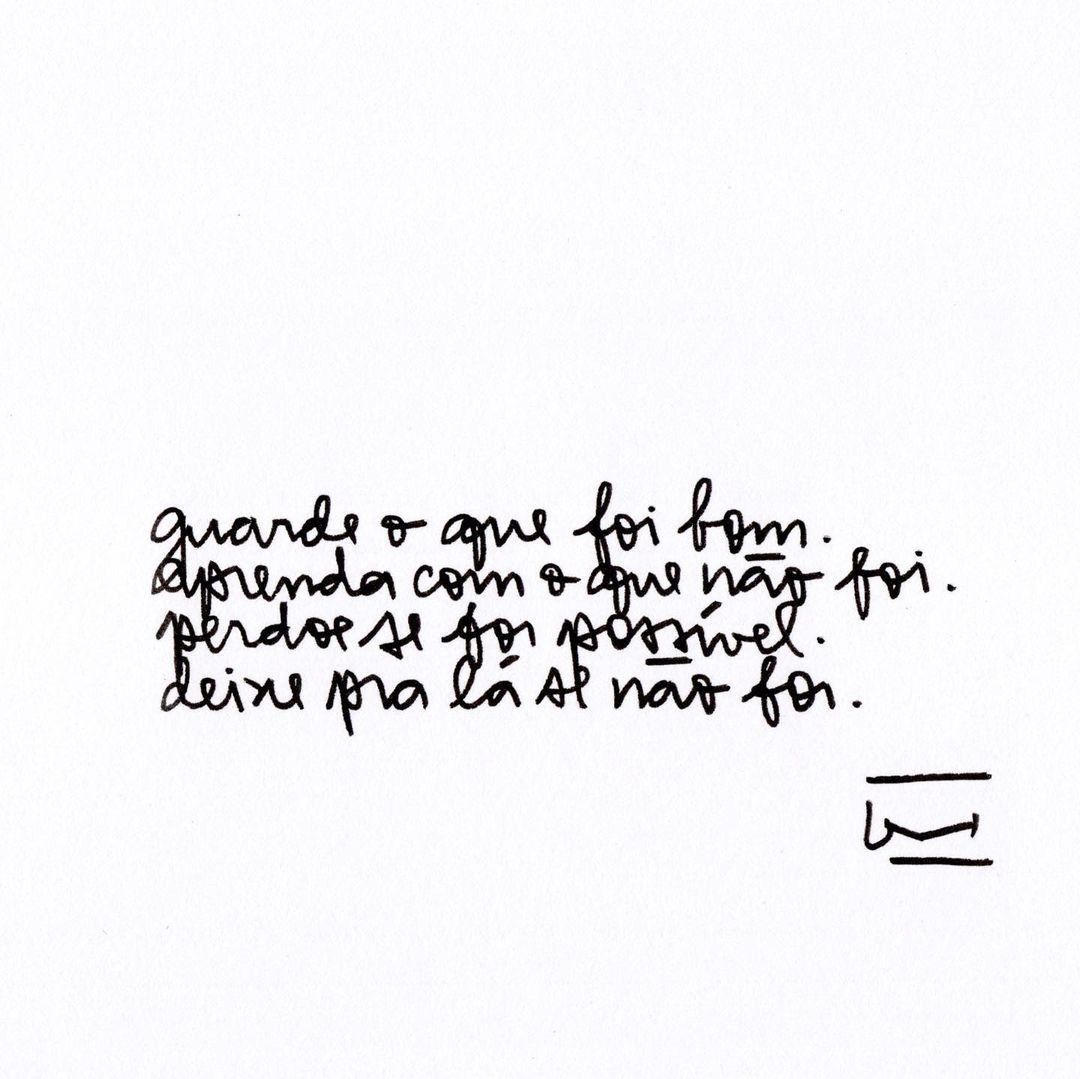 guarde o que foi bom.
aprenda com o que não foi.
perdoe se foi possível.
deixe pra lá se não foi.